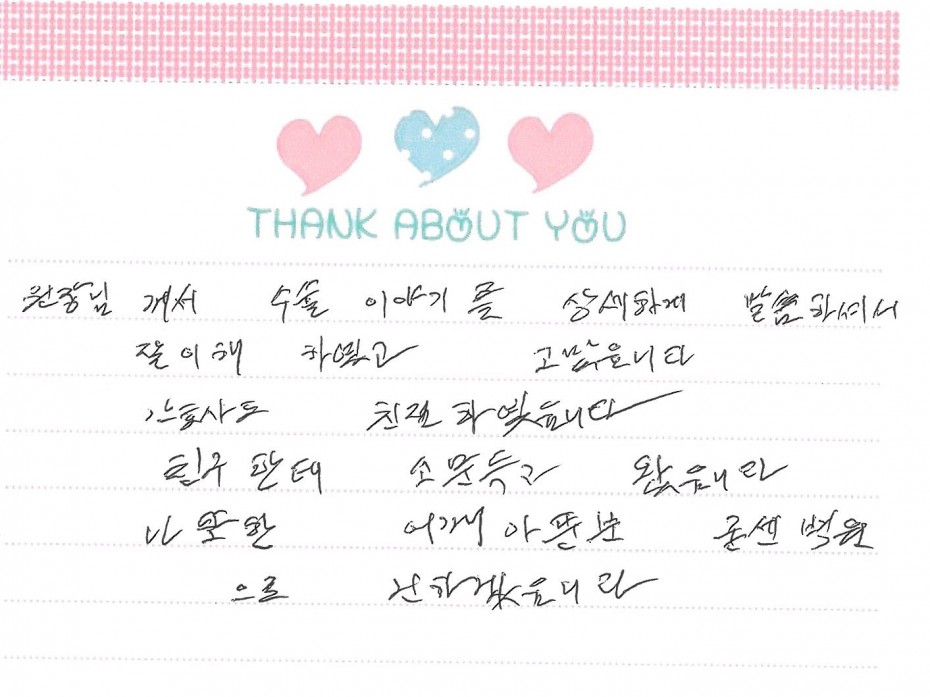 THANK ABOUT YOU
원장님 께서 수술 이야기를 상세하게 말씀하셔서
잘 이해 하였고 고맙읍니다
간호사도 친절 하였읍니다
친구 한테 소문듣고 왔읍니다
나 또한 어깨 아픈분 굳센 병원
으로 전하겠읍니다